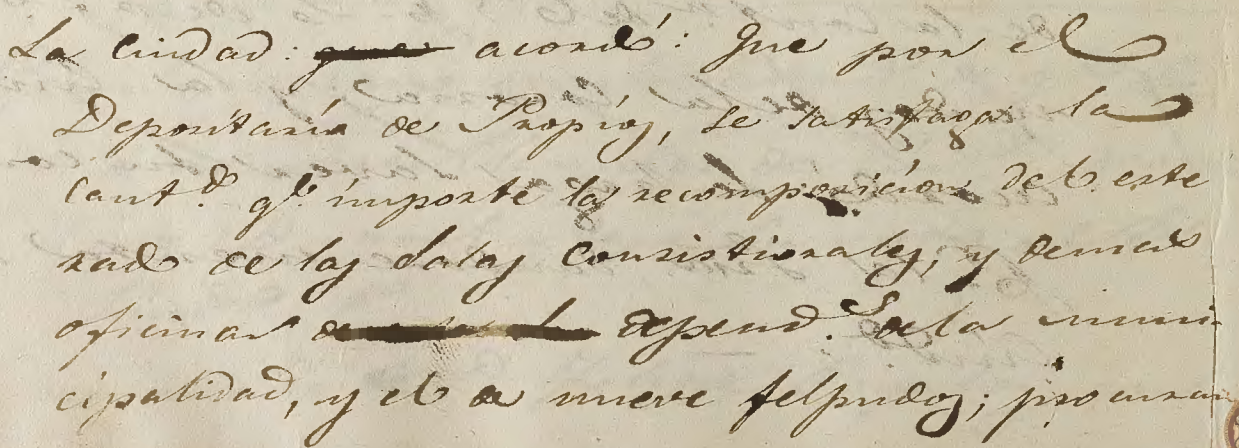 La Ciudad: que acordó: Que por el
Depositaría de Propios, se satisfaga la
cant.d q.e importe la recomposicion del este
rado de las Salas Consistoriales, y demas
oficinas de depend.s de la muni
cipalidad, y el de nueve felpudos; procuran